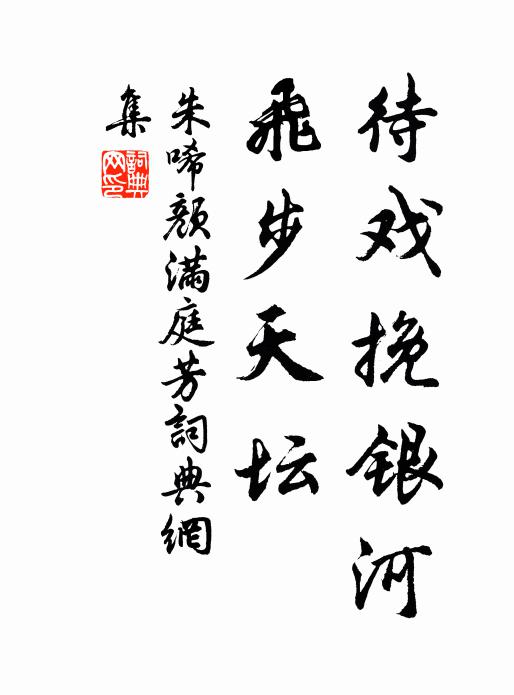 待戏挽银河
飛步天坛
朱唏颜滿庭芳詞典網
集
詞典网印